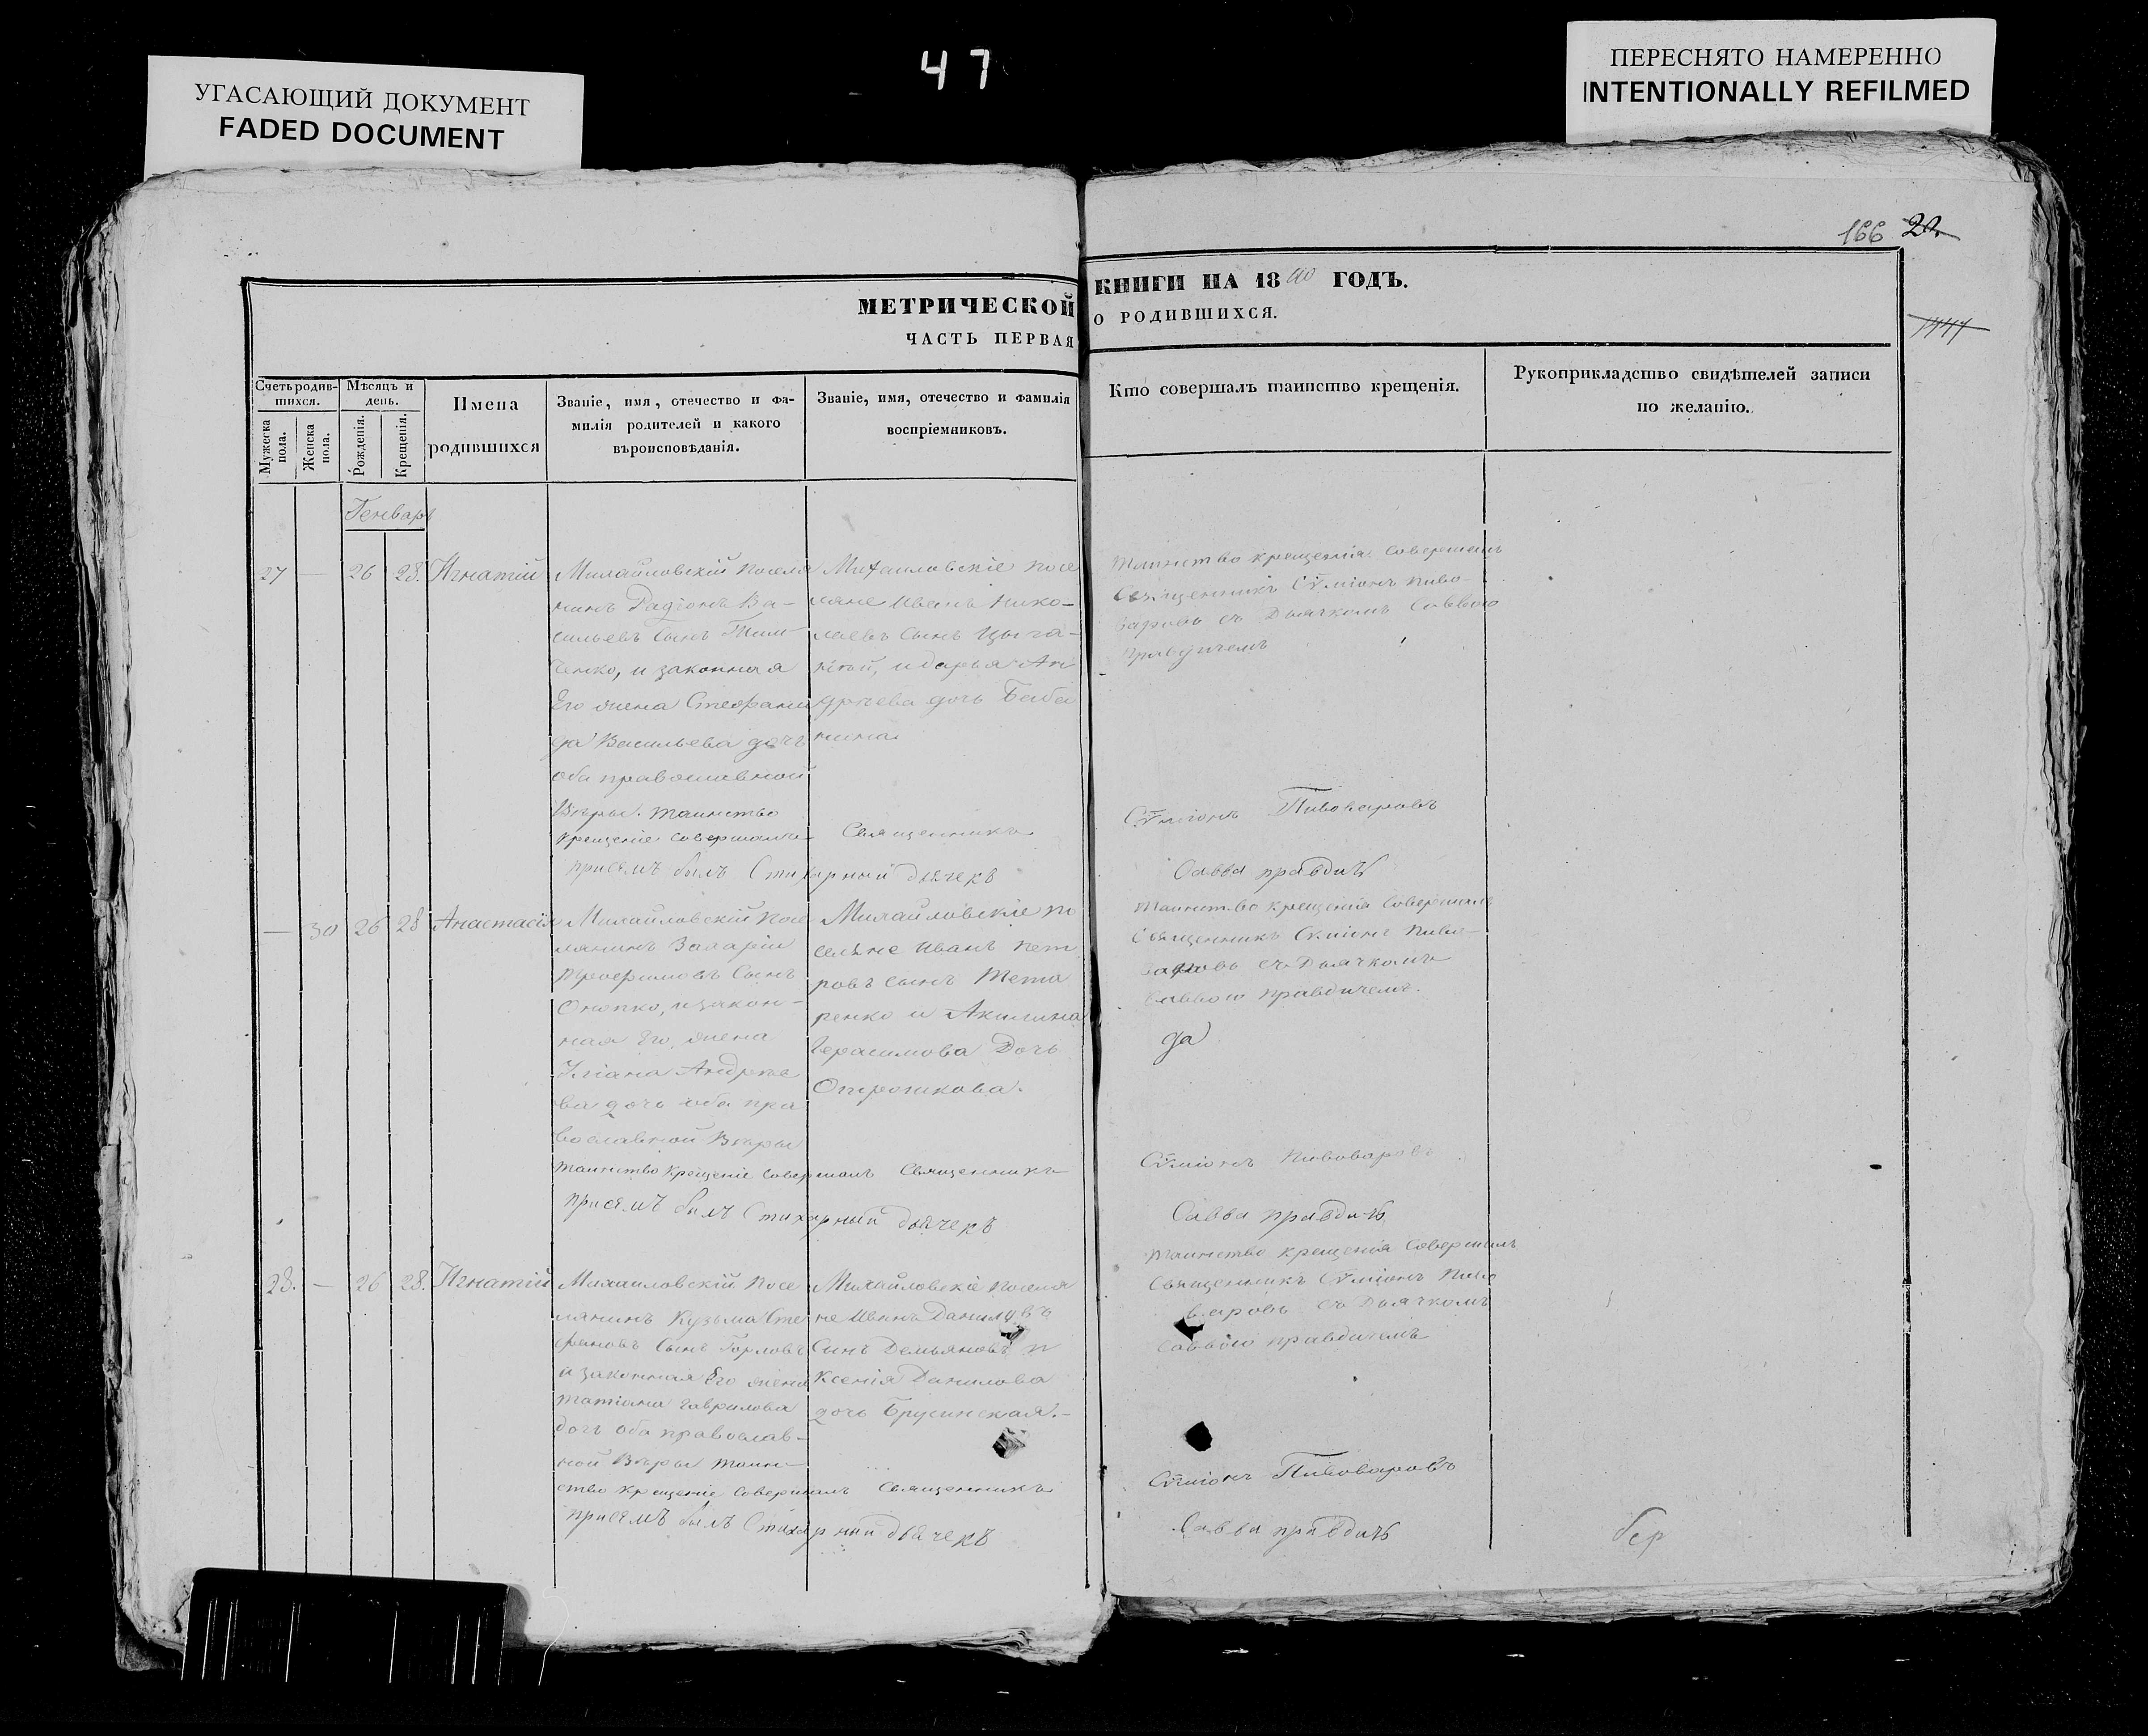 47
УГАСАЮЩИЙ ДОКУМЕНТ
FADED DOCUMENT
ПЕРЕСНЯТО НАМЕРЕННО
INTENTIONALLY REFILMED
166 20.
МЕТРИЧЕСКОЙ КНИГИ НА 18 ГОДЪ.
ЧАСТЬ ПЕРВАЯ О РОДИВШИХСЯ.
Счетъ родив-
шихся.
Мужеска
пола.
Женска
пола.
Мѣсяцъ и
день.
Рожденія.
Крещенія.
Имена
родившихся
Званіе, имя, отечество и фа-
милія родителей и какого
вѣроисповѣданія.
Званіе, имя, отечество и фамилія
воспріемниковъ.
Кто совершалъ таинство крещенія.
Рукоприкладство свидѣтелей записи
по желанію.
Генварь
27 — 26 28. Игнатій
Михайловскій посела
нинъ Радіонъ Ва-
сильевъ сынъ Тим
ченко, и законная
Его жена Стефани
да Васильева дочь
оба православной
Вѣры. Таинство
крещеніе совершалъ Священникъ
присемъ былъ Стихарный дьячекъ
Михаиловскіе посе
ляне Иванъ Нико-
лаевъ сынъ Цыга-
и дарья Ан
дрѣева дочь
Таинство крещенія совершалъ
Священникъ Сѵміонъ Пиво-
варовъ съ Дьячкомъ Саввою
Правдичемъ
Сѵміонъ Пивоваровъ
Савва правдичъ
— 30 26 28 Анастасія
Михайловскій посе
лянинъ Захарій
сынъ
и закон-
ная Его жена
Уліана Андрѣе
ва дочь оба пра
вославной Вѣры
таинство крещеніе совершалъ Священникъ
присемъ былъ Стихарный дьячекъ
Михайловскіе по
селяне Иванъ Пет
ровъ сынъ Тета
ренко и Акилина
Герасимова Дочь
Таинство крещенія совершалъ
Священникъ Симіонъ Пиво-
варовъ съ Дьячкомъ
Саввою правдичемъ.
да
Сѵміонъ Пивоваровъ
Савва правдичъ
28. — 26 28. Игнатій
Михаиловскій посе
лянинъ Кузьма Сте
фановъ сынъ Горловъ
и законная Его жена
татіана Гаврилова
дочь оба православ-
ной Вѣры таин-
ство крещеніе совершалъ Священникъ
присемъ былъ Стихарный дьячекъ
Михайловскіе поселя
не Иванъ Даниловъ
Сынъ Демьяновъ и
Ксенія Данилова
дочь Брусинская.-
Таинство крещенія совершалъ
Священникъ Сѵміонъ Пиво
варовъ съ Дьячкомъ
Саввою правдичемъ
Сѵміонъ Пивоваровъ
Савва правдичъ